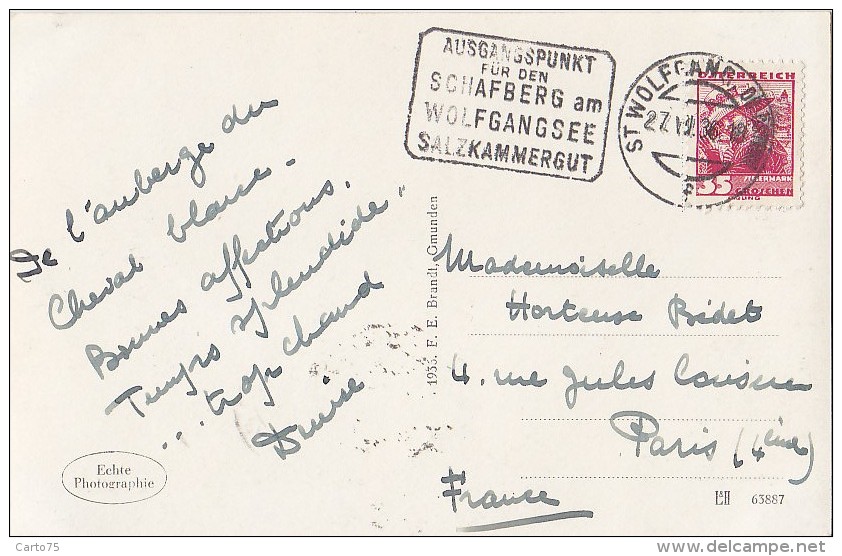 AUSGANGSPUNKT
FÜR DEN
SCHAFBERG am
WOLFGANGSEE
SALZKAMMERGUT
ST WOLFGANG
27.VII.36
ÖSTERREICH
35
GROSCHEN
De l'auberge du
Cheval blanc.
Bonnes affections,
Temps splendide
... trop chaud
Denise
1933. F. E. Brandt, Gmunden
Mademoiselle
Hortense Bidet
4. rue Jules Cousin
Paris (4ème)
France
Echte
Photographie
63887
Carto75
www.delcampe.net